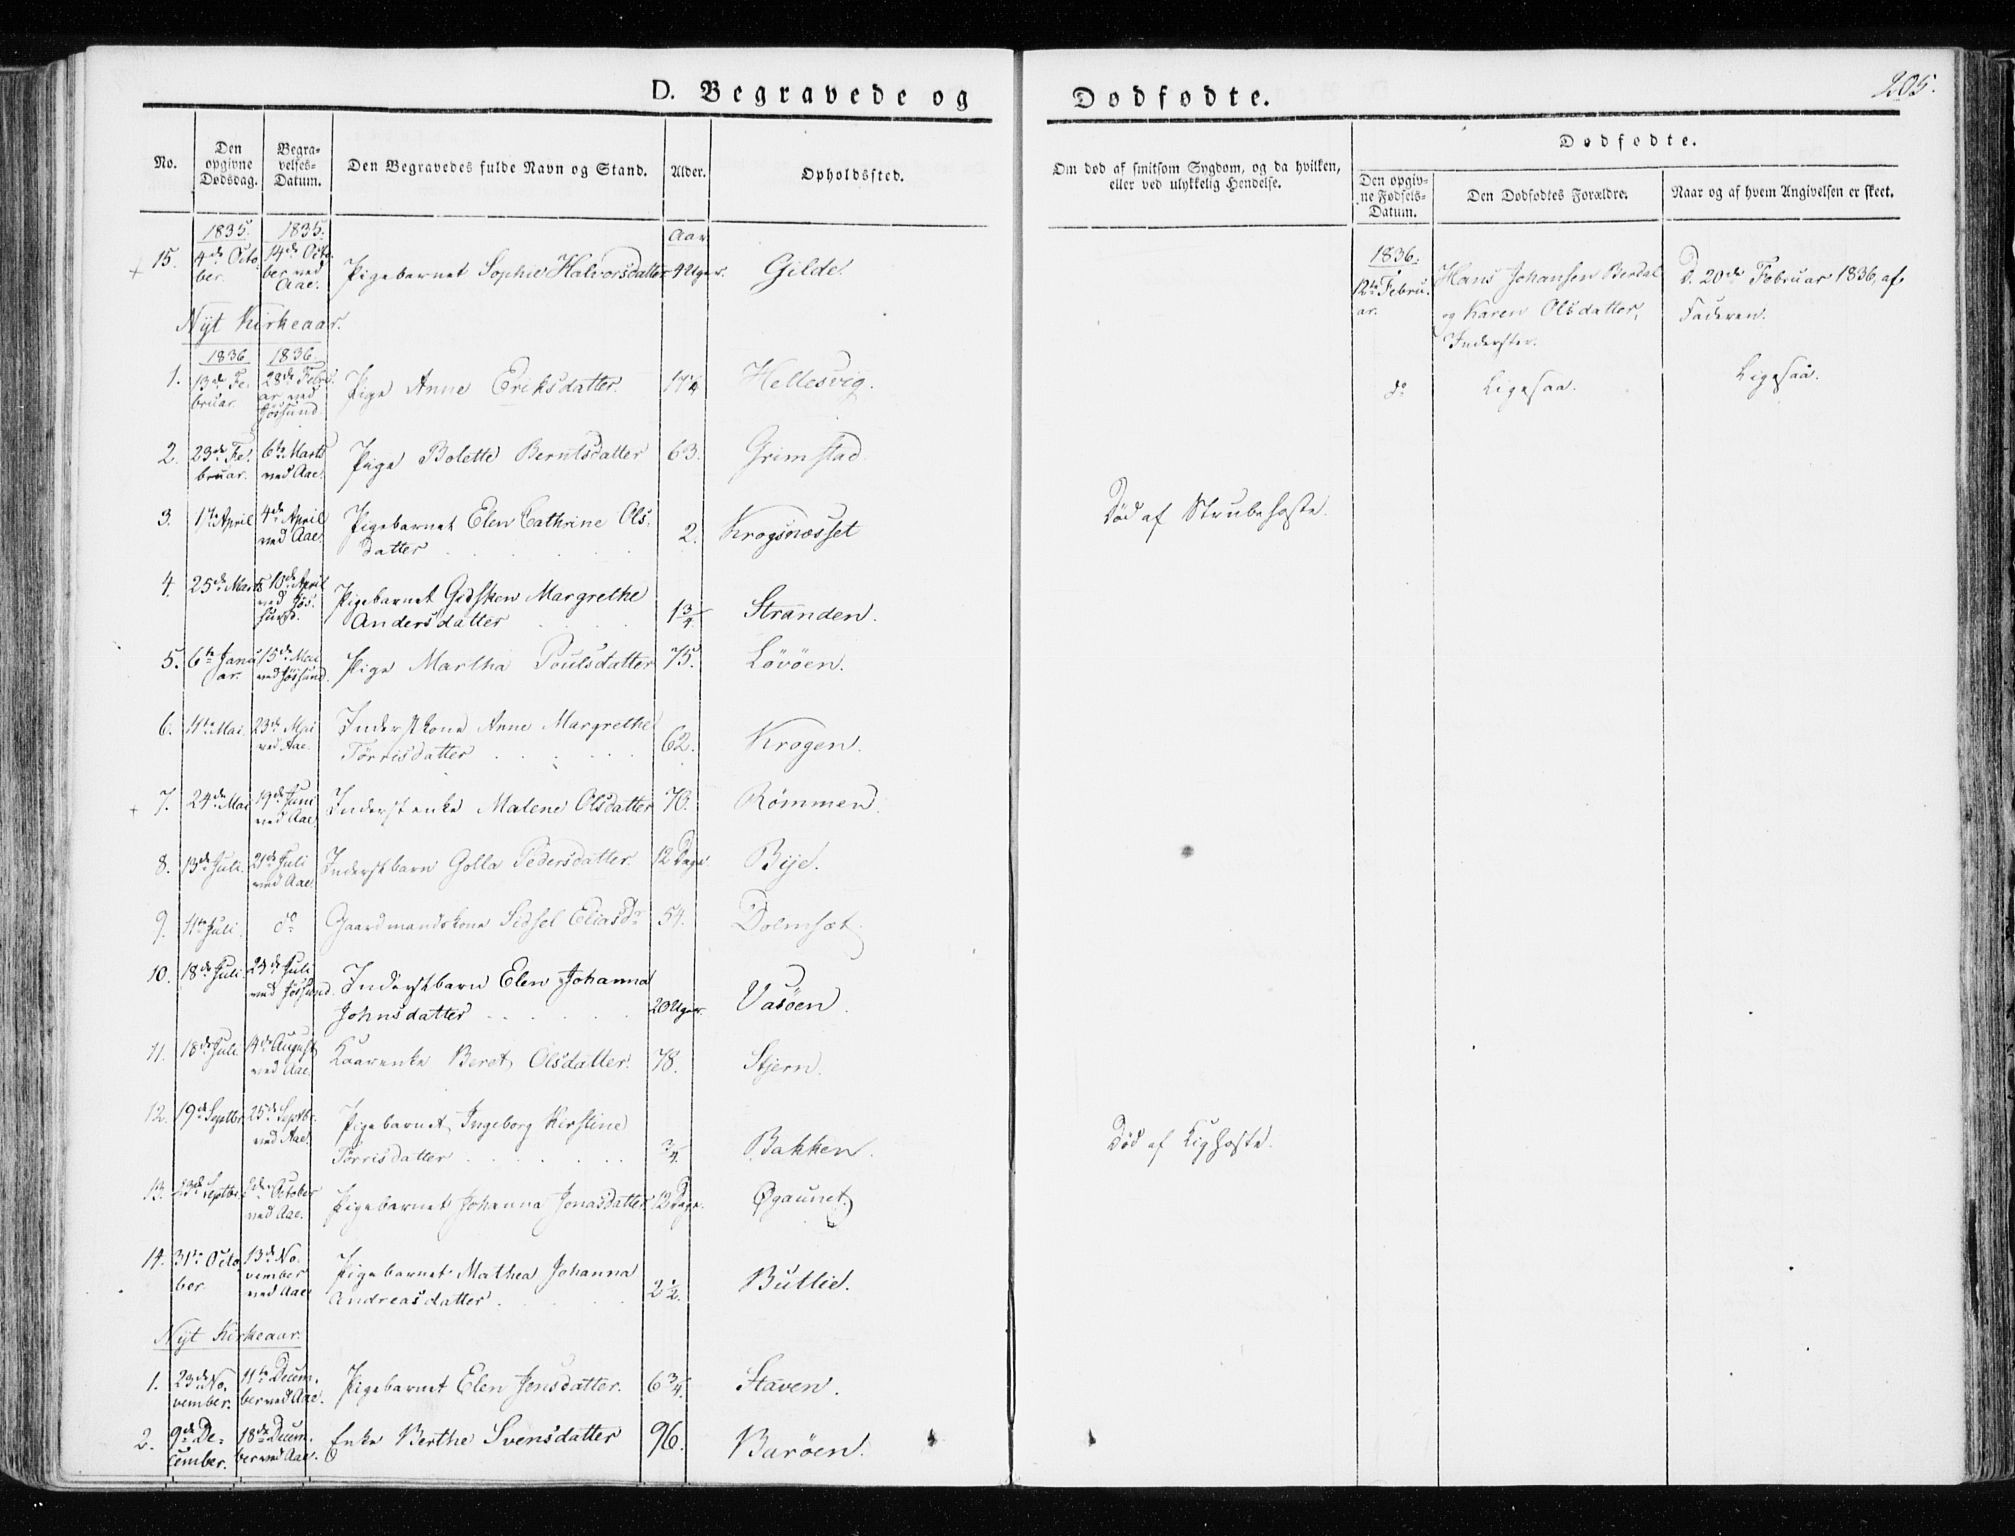 D. Begravede og Dødfødte.
205.
No.
Den opgivne Dødsdag.
Begravelses-Datum.
Den Begravedes fulde Navn og Stand.
Alder.
Opholdssted.
Om død af smitsom Sygdom, og da hvilken,
eller ved ulykkelig Hendelse.
Dødfødte.
Den opgivne Fødsels-Datum.
Den Dødfødtes Forældre.
Naar og af hvem Angivelsen er skeet.
1835. 1835. Aar
15. 4de October. 14de October ved Aae. Pigebarnet Sophie Halvorsdatter 4 Uger. Gilde.
Nyt Kirkeaar.
1836 1836.
1. 13de Februar. 28de Februar ved Jøssund. Pige Anne Eriksdatter. 17 1/4 Hellesvig.
2. 23de Februar. 6te Marts ved Aae. Pige Bolette Berntsdatter 63. Grimstad.
3. 1te April 4de April ved Aae. Pigebarnet Elen Cathrine Olsdatter . . . 2. Krogsnæsset Død af Strubehoste.
4. 25de Marts 10de April ved Jøssund. Pigebarnet Gidsken Margrethe
Andersdatter . . . 1 3/4 Stranden.
5. 6te Januar. 15de Mai ved Jøssund. Pige Martha Poulsdatter 75. Løvøen.
6. 4te Mai 23de Mai ved Aae. Inderstkone Anne Margrethe
Tørrisdatter . . . 62. Krogen.
7. 24de Mai 19de Juni ved Aae. Inderstenke Malene Olsdatter 70. Rømmen.
8. 13de Juli. 21de Juli ved Aae. Inderstbarn Golla Pedersdatter. 12 Dage. Bije.
9. 11te Juli. do Gaardmandskone Sidsel Eliasdr 54. Dolmsæt.
10. 18de Juli 24de Juli ved Jøssund. Inderstbarn Elen Johanna
Johnsdatter . . . 20 Uger. Vasøen.
11. 18de Juli 14de August ved Aae. Kaarenke Beret Olsdatter. 78. Stjern.
12. 19de Septbr. 25de Septbr. ved Aae. Pigebarnet Ingeborg Kirstine
Tørrisdatter . . . 3/4. Bakken. Død af Kighoste.
13. 23de Septbr. 2de October ved Aae. Pigebarnet Johanna Jonasdatter 12 Dage. Øgaunet.
14. 31te October. 13de November ved Aae. Pigebarnet Mathea Johanna
Andreasdatter . . . 2 1/2. Butlie.
Nyt Kirkeaar.
1. 23de November. 11te December ved Aae. Pigebarnet Elen Jensdatter. 6 3/4. Staven.
2. 9de December. 18de December ved Aae. Enke Berthe Svensdatter 96. Barøen.
1836.
12te Februar. Hans Johansen Berdal
og Karen Olsdatter,
Inderster.
D. 20de Februar 1836, af
Faderen.
do Ligesaa. Ligesaa.